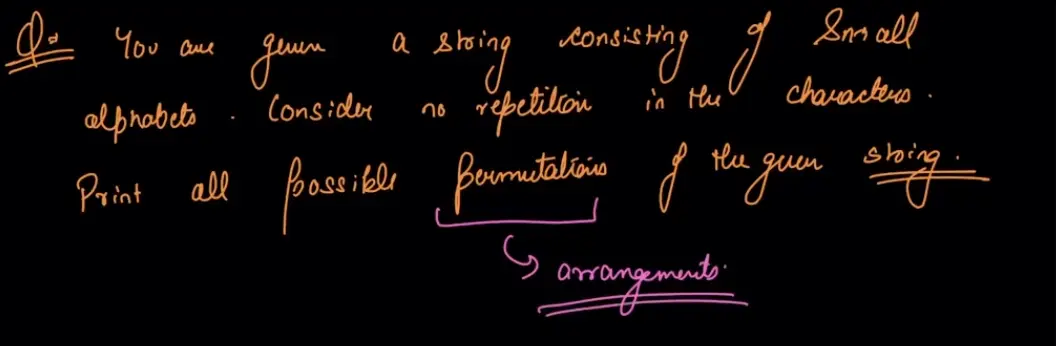 Q= You are given a string consisting of Small
alphabets. Consider no repetition in the characters.
Print all possible permutations of the given string.
arrangements.